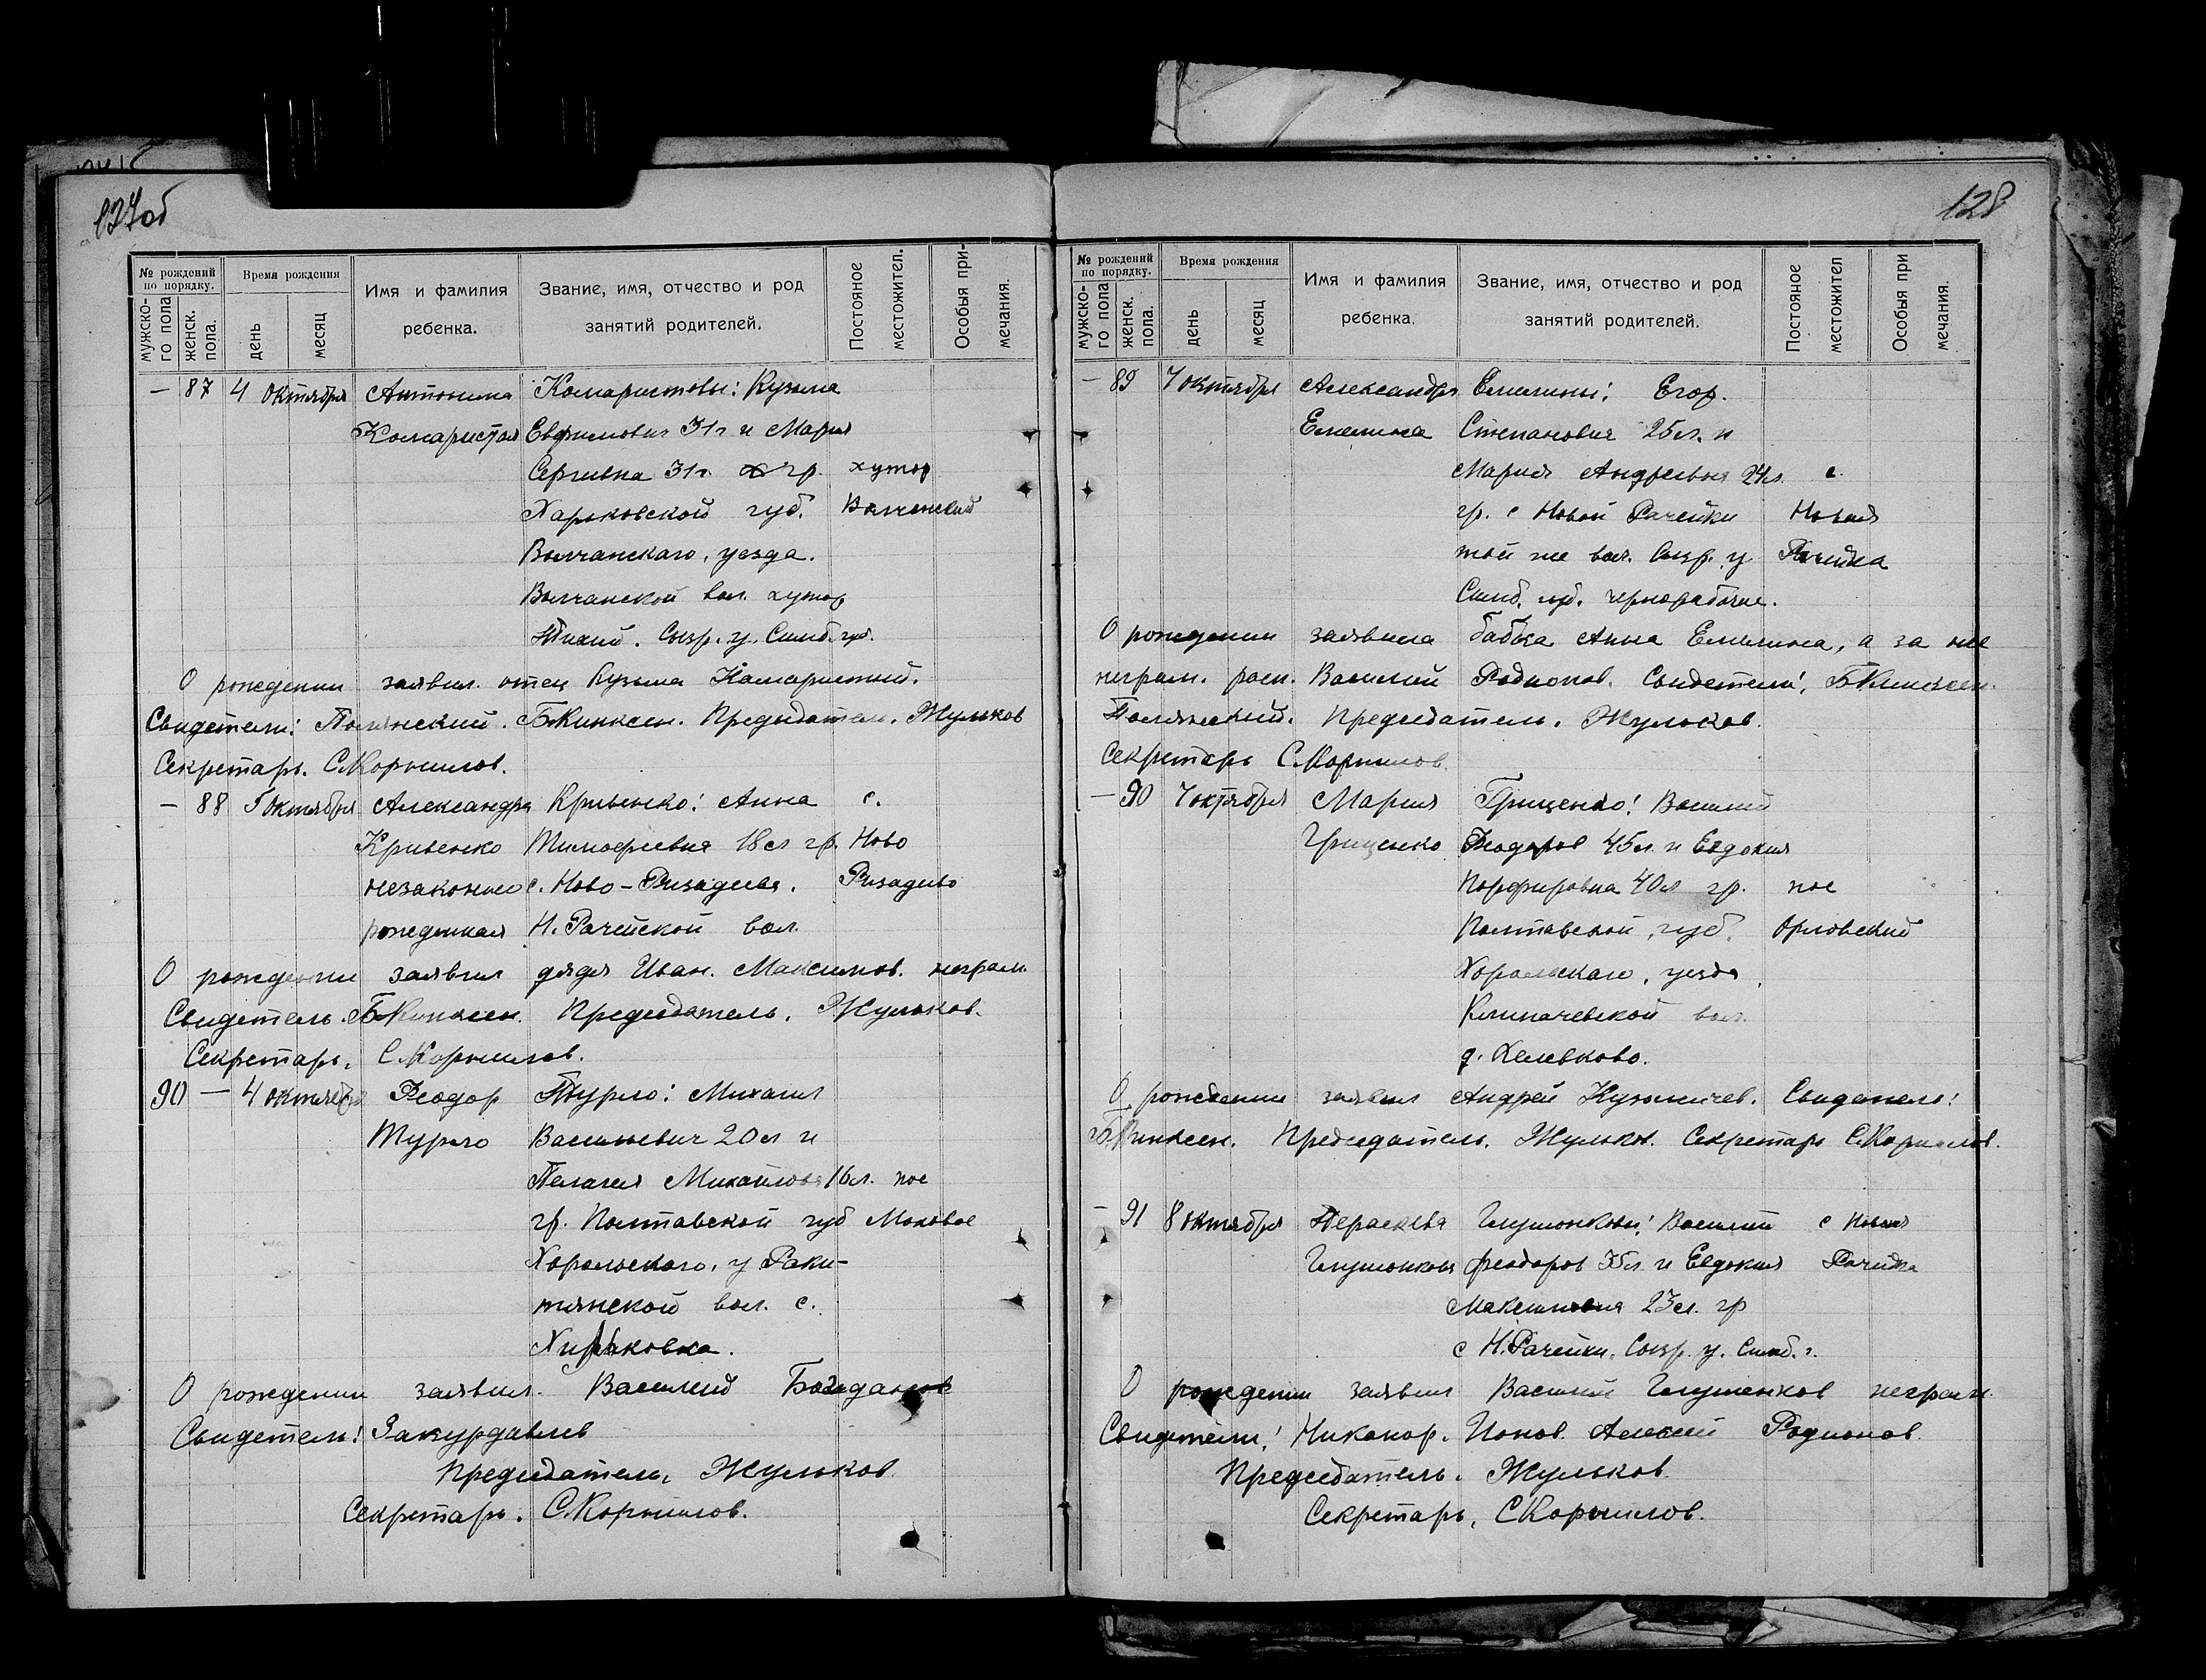 127об
№ рождений по порядку.
мужско-го пола
женск. пола.
Время рождения
день
месяц
Имя и фамилия ребенка.
Звание, имя, отчество и род занятий родителей.
Постояное местожител.
Особыя при-мечания.
— 87 4 Октября Антонина Комаристовы: Кузьма
Комаристая Евфимович 31 г и Мария
Сергивна 31 г. гр. хутор
Харьковской губ. Волчанский
Волчанскаго, уезда.
Волчанской вол. хутор
Тихий. Сызр. у. Симб. губ.
О рождении заявил. отец Кузьма Комаристый.
Свидетели: Полянский. Б Кинксен. Председатель. Жульков
Секретарь. С. Корнилов.
— 88 5 Октября Александра Кривенко: Анна с.
Кривенко Тимофеевна 18 л гр. Ново
незаконно с. Ново-Ризадеева. Ризадево
рожденная Н. Рачейской вол.
О рождении заявил дядя Иван. Максимов. неграм.
Свидетель. Б Кинксен. Председатель. Жульков.
Секретарь. С. Корнилов.
90 — 4 октября Феодор Турло: Михаил
Турло Васильевич 20 л и
Пелагея Михайловна 16 л. пос
гр. Полтавской губ Моховое
Хорольского, у Раки-
тянской вол. с.
О рождении заявил. Василий Богданов
Свидетель: Закурдавлев
Председатель. Жульков
Секретарь. С. Корнилов.
128
№ рождений по порядку.
мужско-го пола
женск. пола.
Время рождения
день
месяц
Имя и фамилия ребенка.
Звание, имя, отчество и род занятий родителей.
Постояное местожител
Особыя при мечания.
— 89 7 октября Александра Емелины: Егор.
Емелина Степанович 25 л. и
Мария Андреевна 24 л. с.
гр. с Новой Рачейки Новая
той же вол. Сызр. у Рачейка
Симб. губ. чернорабочие.
О рождении заявила бабка Анна Емелина, а за нее
неграм. расп. Василий Родионов. Свидетели: Б Кинксен.
Полянский. Председатель. Жульков.
Секретарь С. Корнилов.
— 90 7 октября Мария Грищенко: Василий
Грищенко Феодоров 45 л. и Евдокия
Порфировна 40 л гр. пос
Полтавской, губ. Орловский
Хорольскаго, уезда,
вол.
О рождении заявил Андрей Кузьмичев. Свидетель:
Б Кинксен. Председатель. Жульков. Секретарь С. Корнилов.
— 91 8 октября Параскева Глушонковы: Василий с Новая
Глушонкова Феодоров 35 л. и Евдокия Рачейка
Максимовна 23 л. гр
с Н. Рачейки. Сызр. у. Симб. г.
О рождении заявил Василий Глушенков неграм.
Свидетели: Никонор. Ионов. Алексей Родионов.
Председатель. Жульков.
Секретарь, С Корнилов.